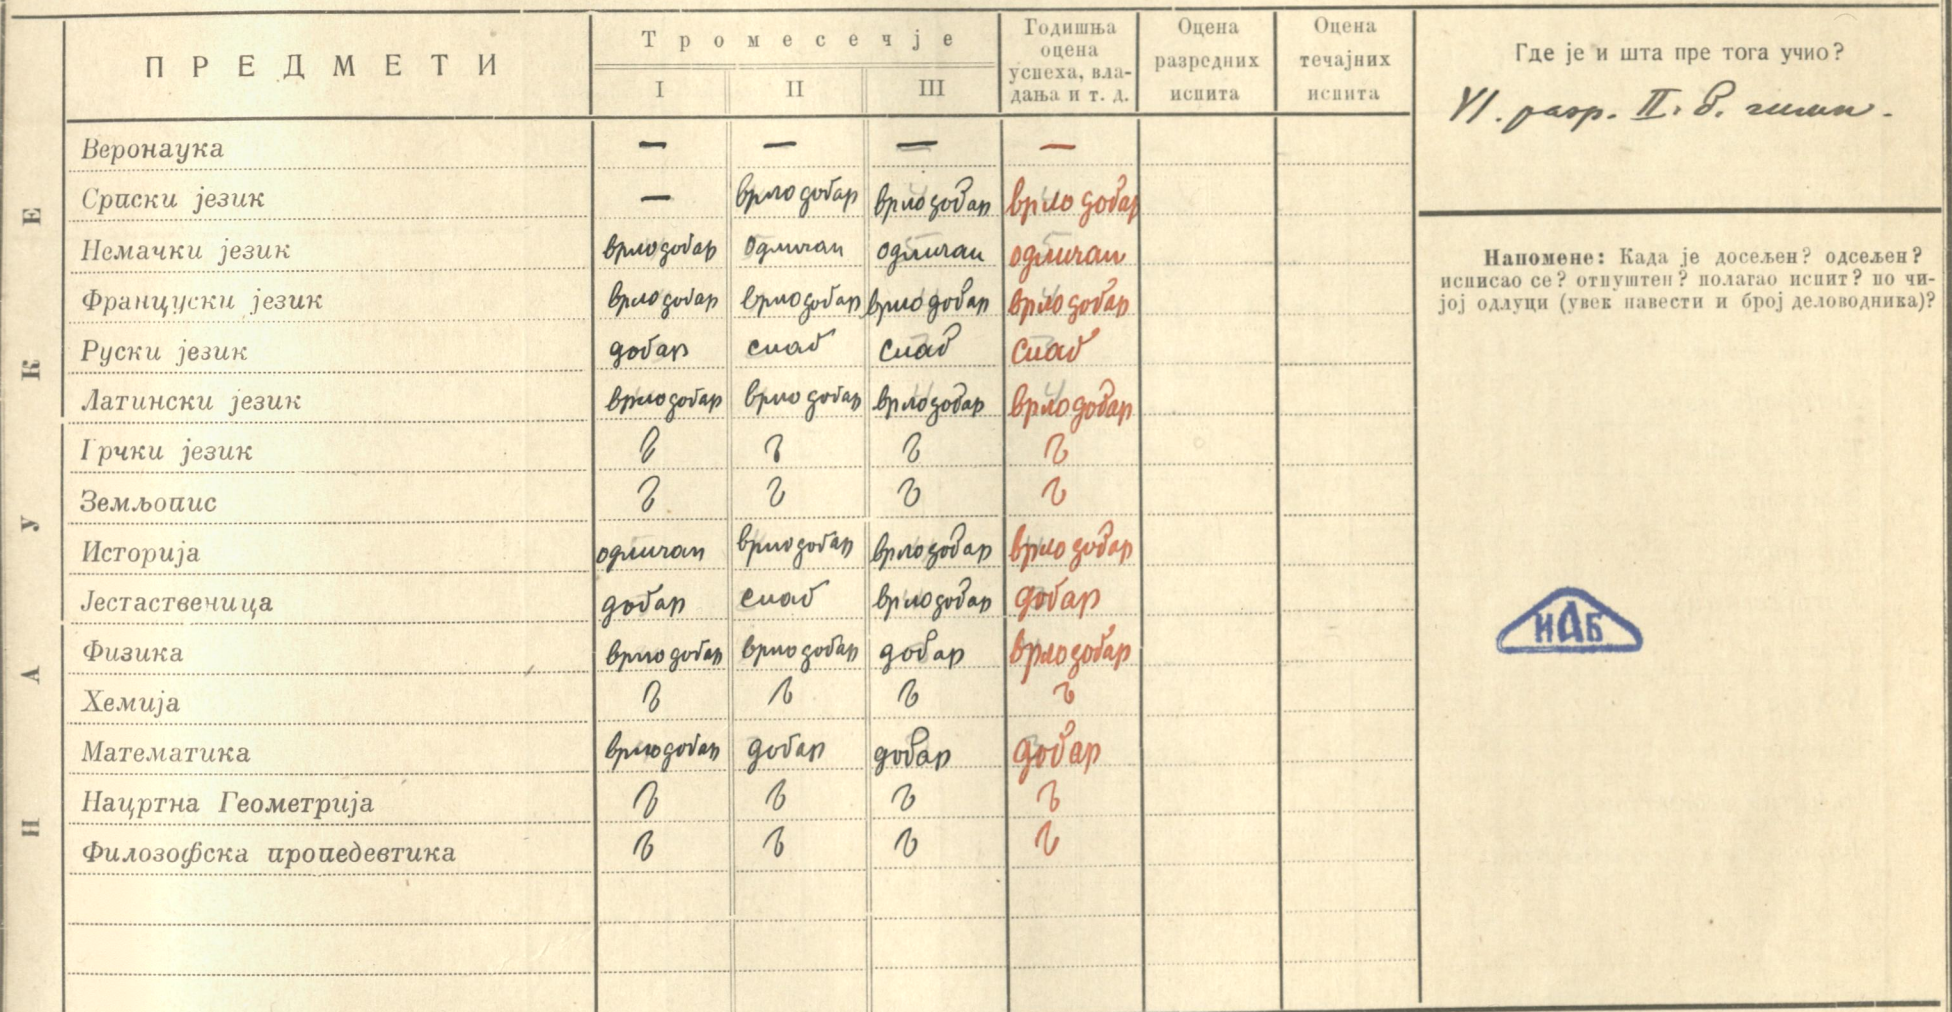 ПРЕДМЕТИ Тромесечје Годишња оцена успеха, владања и т. д. Оцена разредних испита Оцена течајних испита
I II III
Где је и шта пре тога учио?
VI. разр. II. б. гимн.
НАУКЕ
Веронаука — — — —
Српски језик — врло добар врло добар врло добар
Немачки језик врло добар одличан одличан одличан
Француски језик врло добар врло добар врло добар врло добар
Руски језик добар слаб слаб слаб
Латински језик врло добар врло добар врло добар врло добар
Грчки језик
Земљопис
Историја одличан врло добар врло добар врло добар
Јестаственица добар слаб врло добар добар
Физика врло добар врло добар добар врло добар
Хемија
Математика врло добар добар добар добар
Нацртна Геометрија
Филозофска пропедевтика
Напомене: Када је досељен? одсељен?
исписао се? отпуштен? полагао испит? по чи-
јој одлуци (увек навести и број деловодника)?
ИАБ